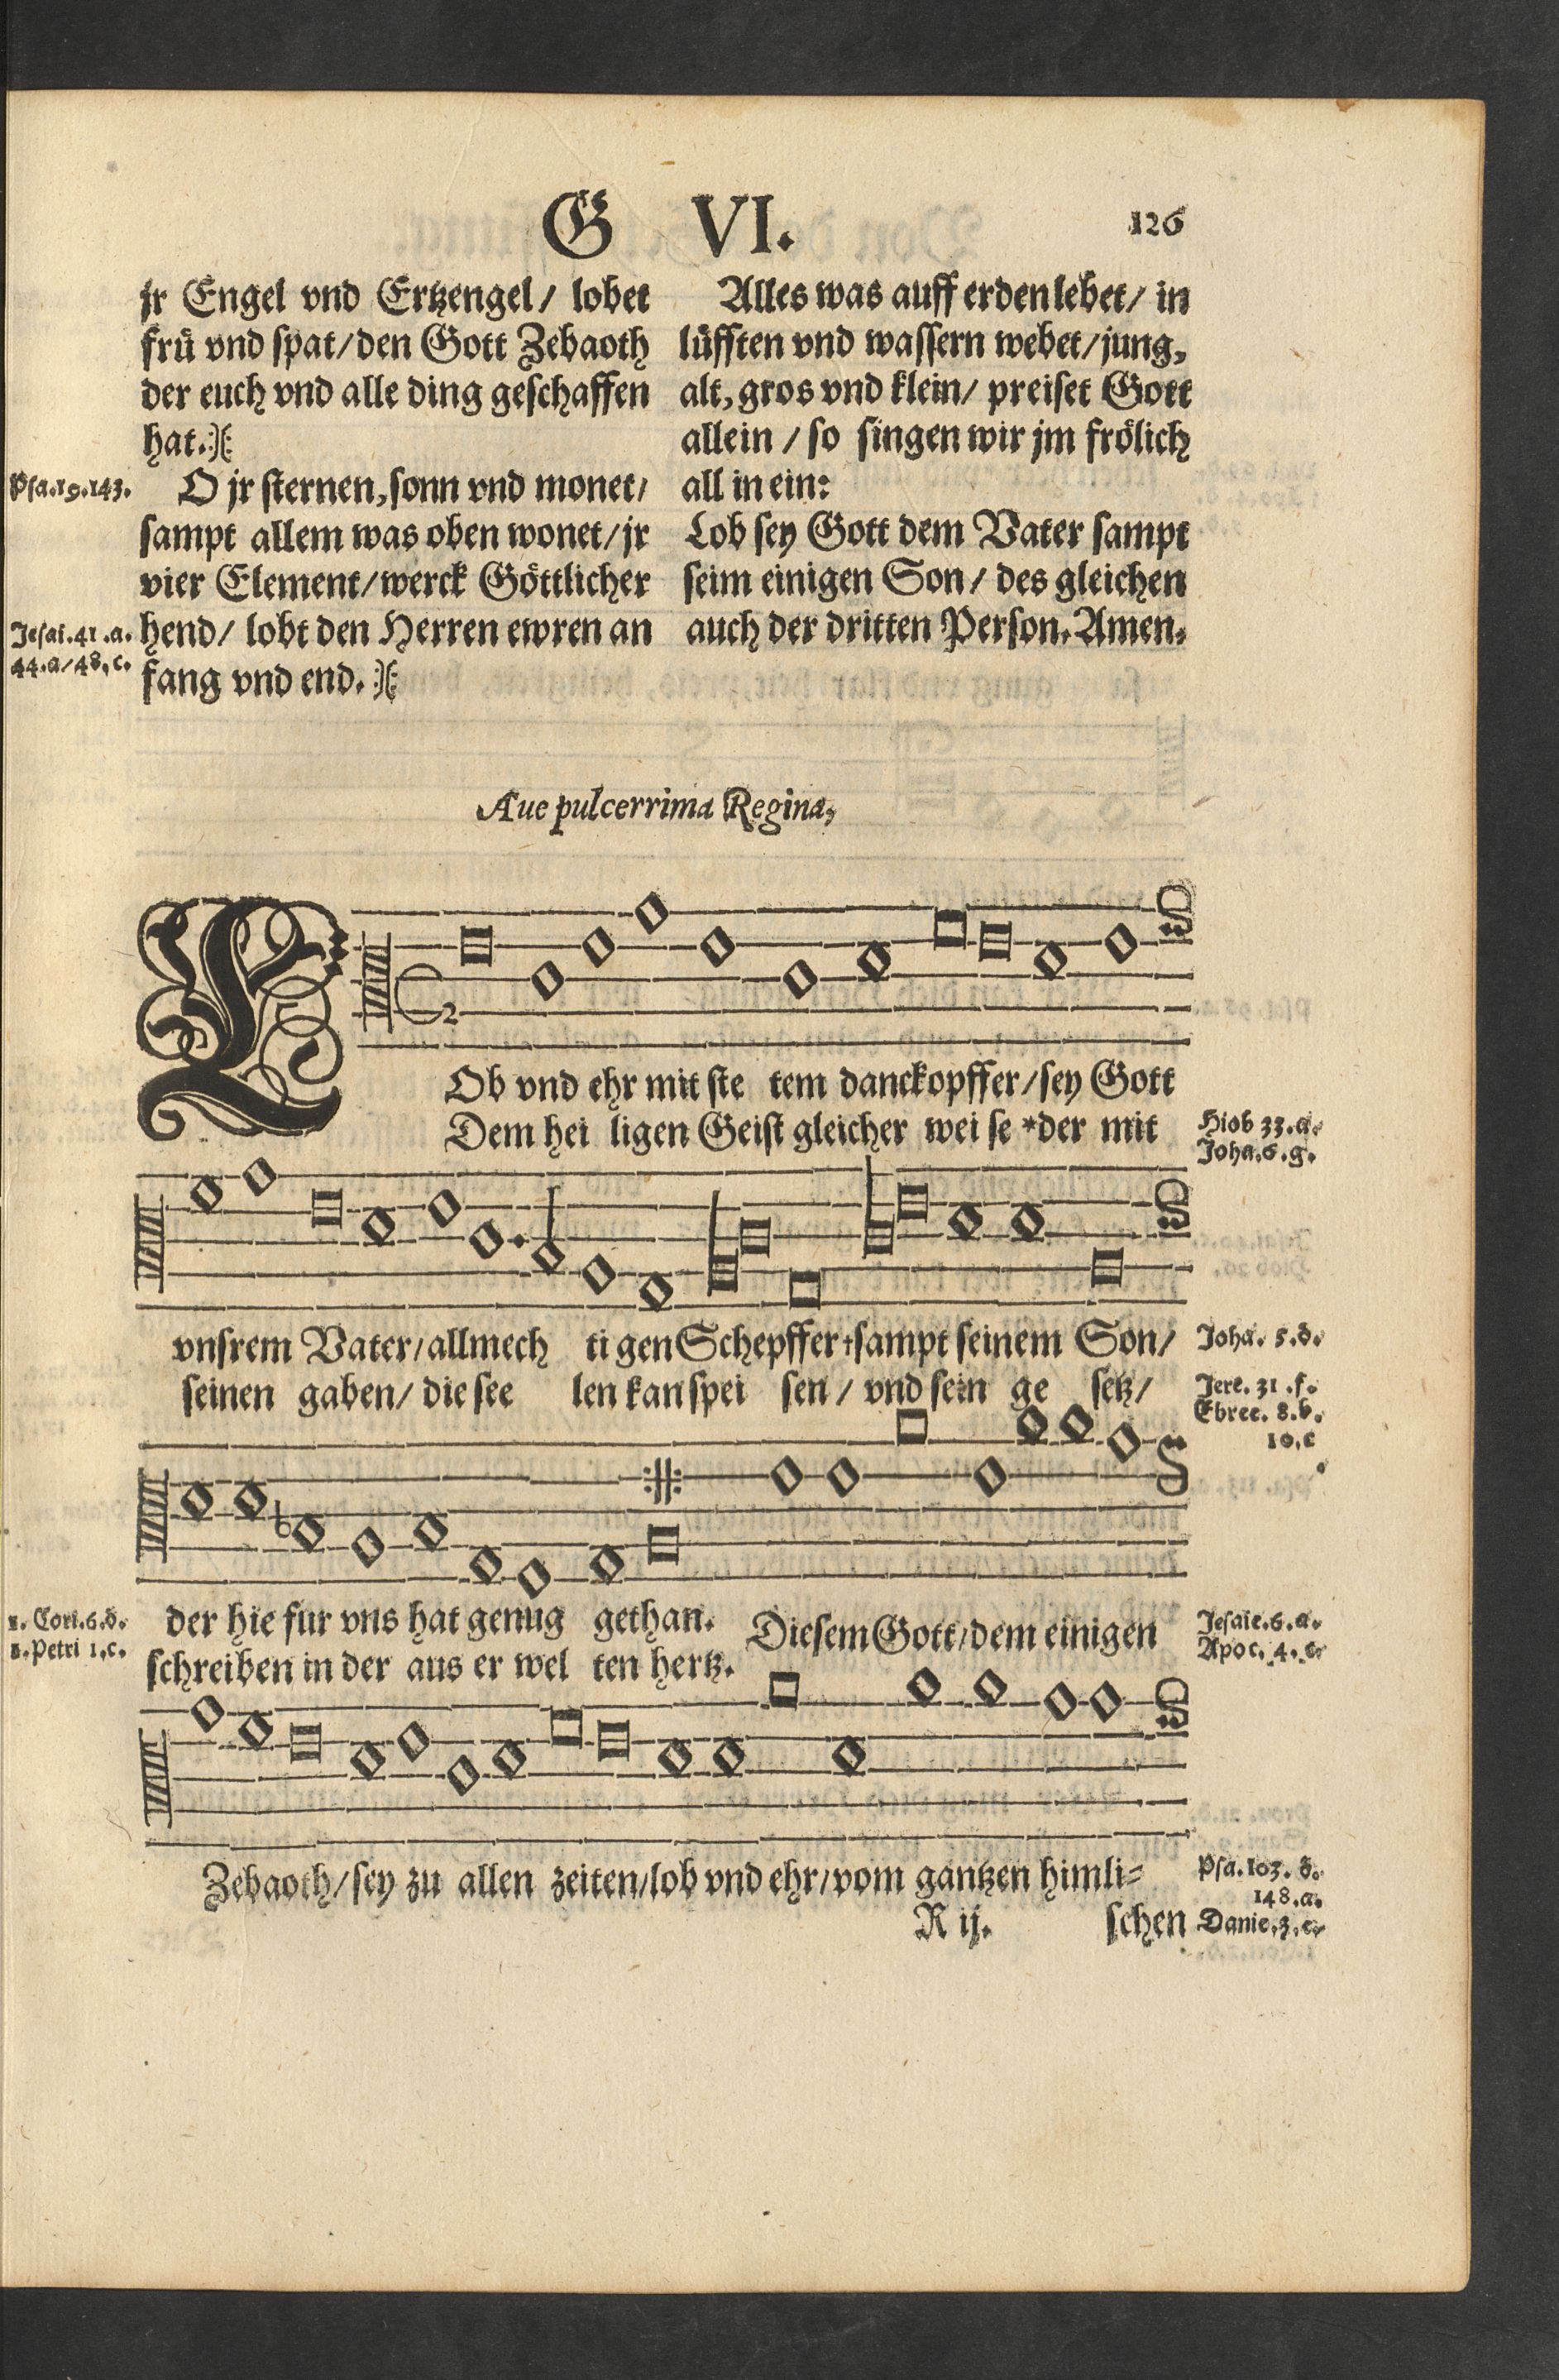 G VI. 126
jr Engel vnd Ertzengel / lobet
frü vnd spat / den Gott Zebaoth
der euch vnd alle ding geschaffen
hat.
Psa.19.143.
O jr sternen, sonn vnd monet /
sampt allem was oben wonet / jr
vier Element / werck Göttlicher
Jesai.41.a.
44.a/48.c.
hend / lobt den Herren ewren an
fang vnd end.
Alles was auff erden lebet / in
lüfften vnd wassern webet / jung,
alt, gros vnd klein / preiset Gott
allein / so singen wir jm frölich
all in ein:
Lob sey Gott dem Vater sampt
seim einigen Son / des gleichen
auch der dritten Person. Amen.
Aue pulcerrima Regina,
LOb vnd ehr mit ste tem danckopffer / sey Gott
Dem hei ligen Geist gleicher wei se *der mit
Hiob 33.a.
Joha.6.g.
vnsrem Vater / allmech ti gen Schepffer † sampt seinem Son /
Joha. 5.d.
seinen gaben / die see len kan spei sen / vnd sein ge setz /
Jere. 31.f.
Ebree. 8.b.
10.c
1. Cori.6.d.
1. Petri 1.c.
der hie fur vns hat genug gethan. Diesem Gott / dem einigen
schreiben in der aus er wel ten hertz.
Jesaie.6.a.
Apoc. 4.c.
Zebaoth / sey zu allen zeiten / lob vnd ehr / vom gantzen himli=
Psa.103.d.
148.a.
R ij. schen
Danie.3.e.